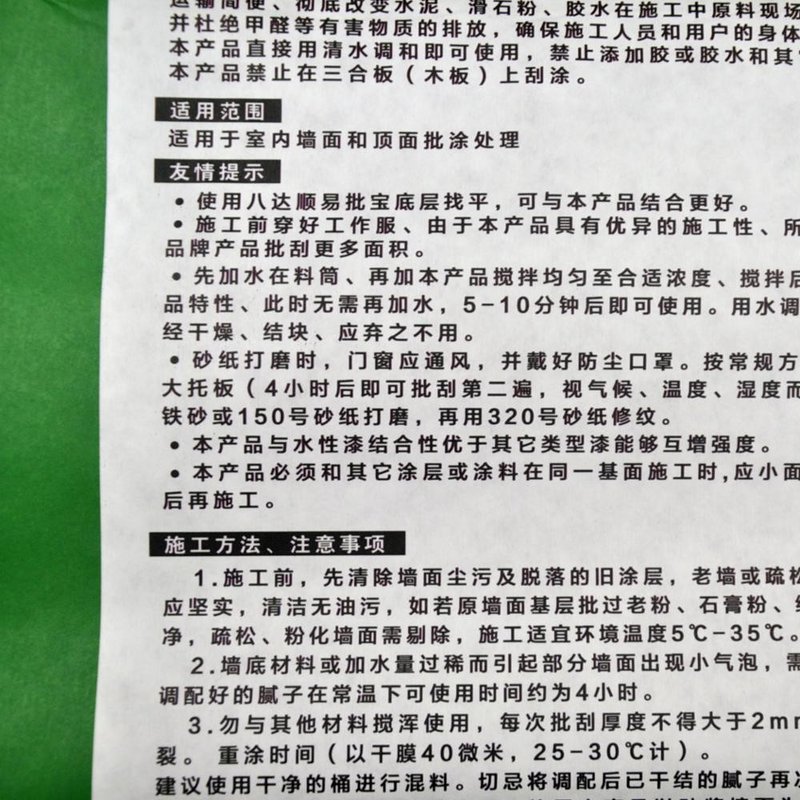 运输简便、彻底改变水泥、滑石粉、胶水在施工中原料现场
并杜绝甲醛等有害物质的排放，确保施工人员和用户的身体
本产品直接用清水调和即可使用，禁止添加胶或胶水和其
本产品禁止在三合板（木板）上刮涂。
适用范围
适用于室内墙面和顶面批涂处理
友情提示
• 使用八达顺易批宝底层找平，可与本产品结合更好。
• 施工前穿好工作服、由于本产品具有优异的施工性、所
品牌产品批刮更多面积。
• 先加水在料筒、再加本产品搅拌均匀至合适浓度、搅拌后
品特性、此时无需再加水，5-10分钟后即可使用。用水调
经干燥、结块、应弃之不用。
• 砂纸打磨时，门窗应通风，并戴好防尘口罩。按常规方
大托板（4小时后即可批刮第二遍，视气候、温度、湿度而
铁砂或150号砂纸打磨，再用320号砂纸修纹。
• 本产品与水性漆结合性优于其它类型漆能够互增强度。
• 本产品必须和其它涂层或涂料在同一基面施工时,应小面
后再施工。
施工方法、注意事项
1.施工前，先清除墙面尘污及脱落的旧涂层，老墙或疏松
应坚实，清洁无油污，如若原墙面基层批过老粉、石膏粉、
净，疏松、粉化墙面需剔除，施工适宜环境温度5℃-35℃。
2.墙底材料或加水量过稀而引起部分墙面出现小气泡，需
调配好的腻子在常温下可使用时间约为4小时。
3.勿与其他材料搅浑使用，每次批刮厚度不得大于2mm
裂。 重涂时间（以干膜40微米，25-30℃计）。
建议使用干净的桶进行混料。切忌将调配后已干结的腻子再次